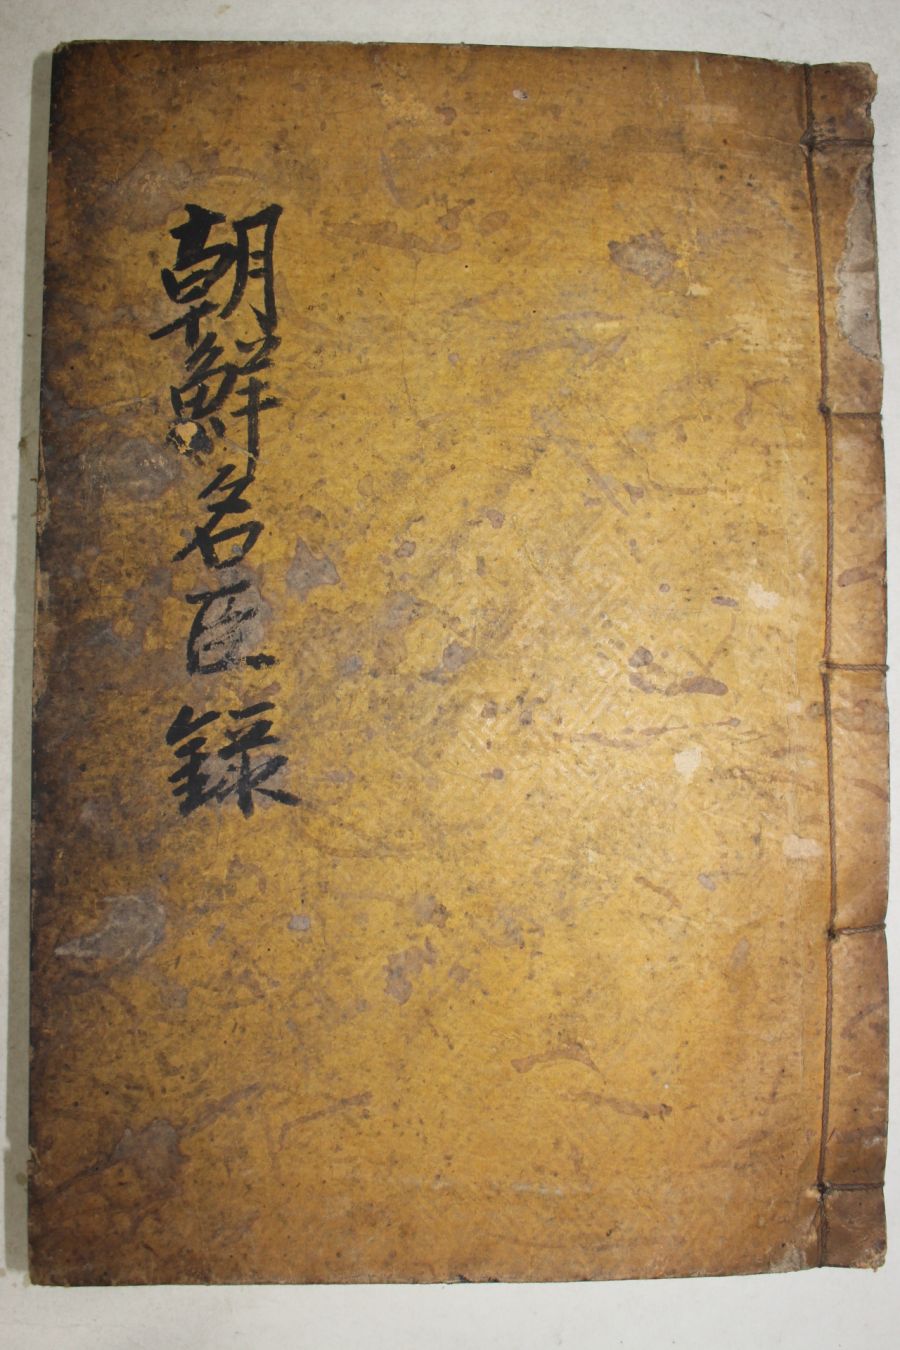 朝鮮名臣錄